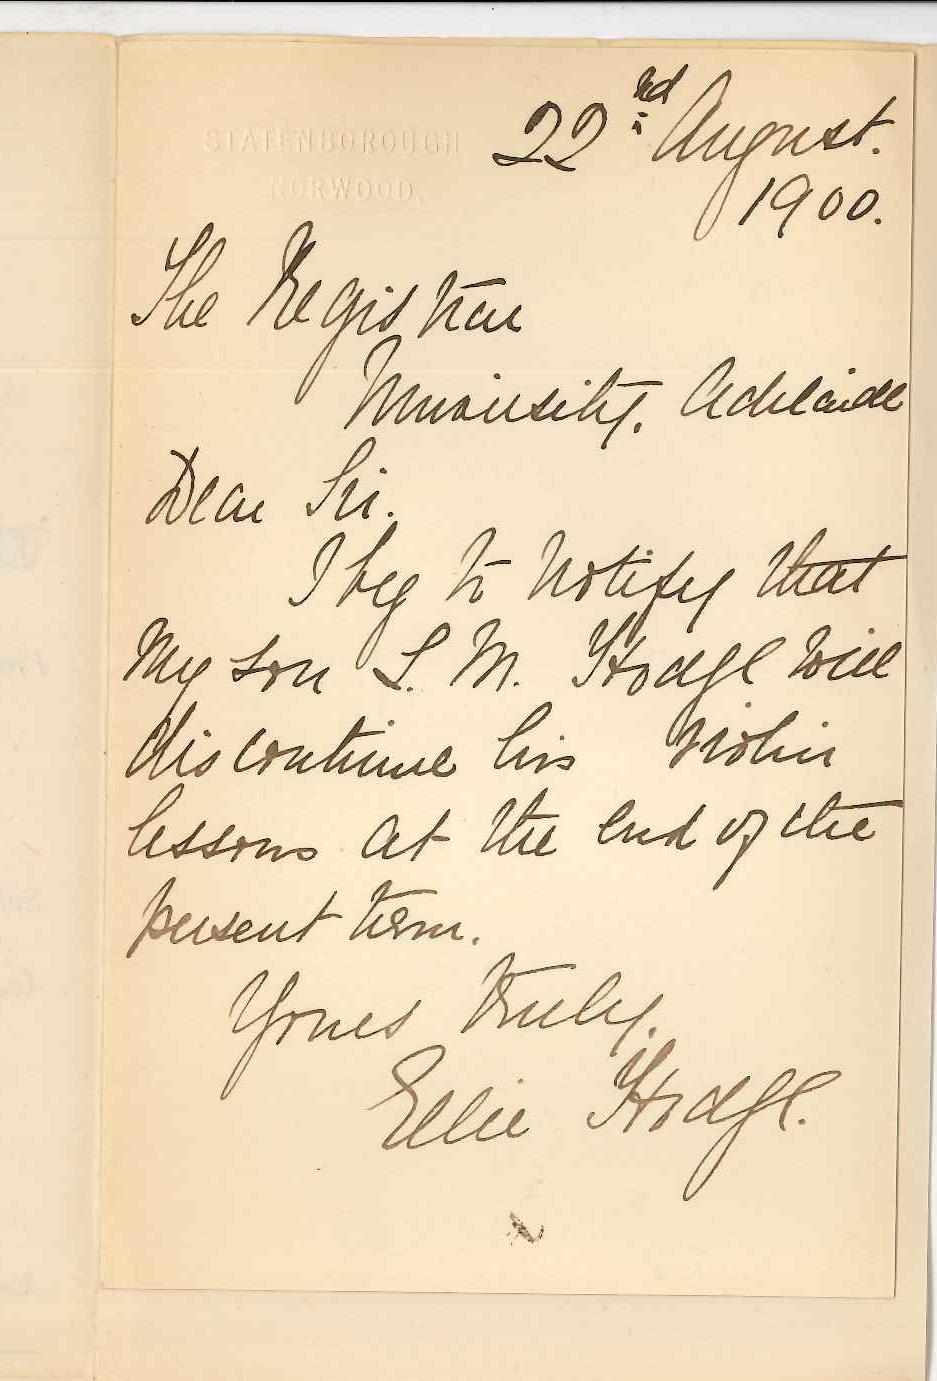 STATENBOROUGH
NORWOOD.
22nd August.
1900.
The Registrar
University. Adelaide
Dear Sir.
I beg to notify that
my son S. M. Hodge will
discontinue his violin
lessons at the end of the
present term.
Yours truly.
Ellie Hodge.